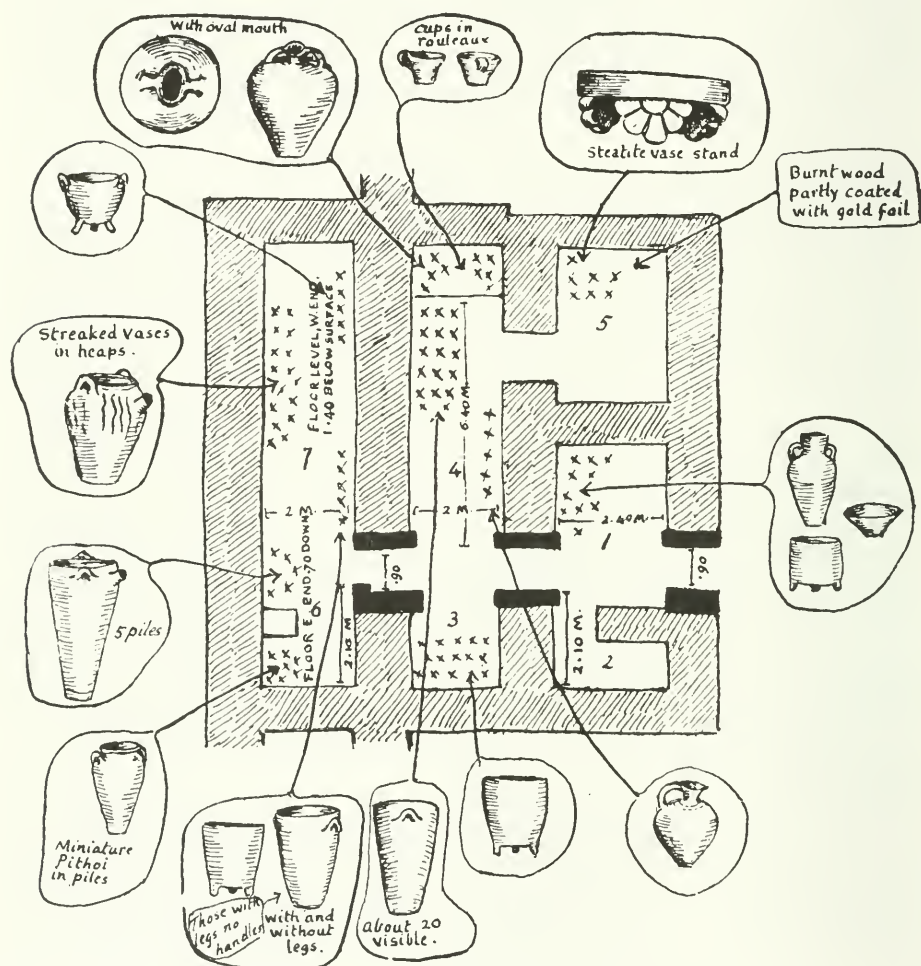 with oval mouth
cups in
rouleaux
Steatite vase stand
Burnt wood
partly coated
with gold foil
Streaked vases
in heaps.
FLOOR LEVEL, W. END.
1.40 BELOW SURFACE
5
6.40 M.
7
4
2 M.
2.40 M.
1
.90
.90
3
FLOOR E. END .70 DOWN
6
2.10 M.
2.10 M.
2
5 piles
Miniature
Pithoi
in piles
Those with
legs no
handles
with and
without
legs.
About 20
visible.